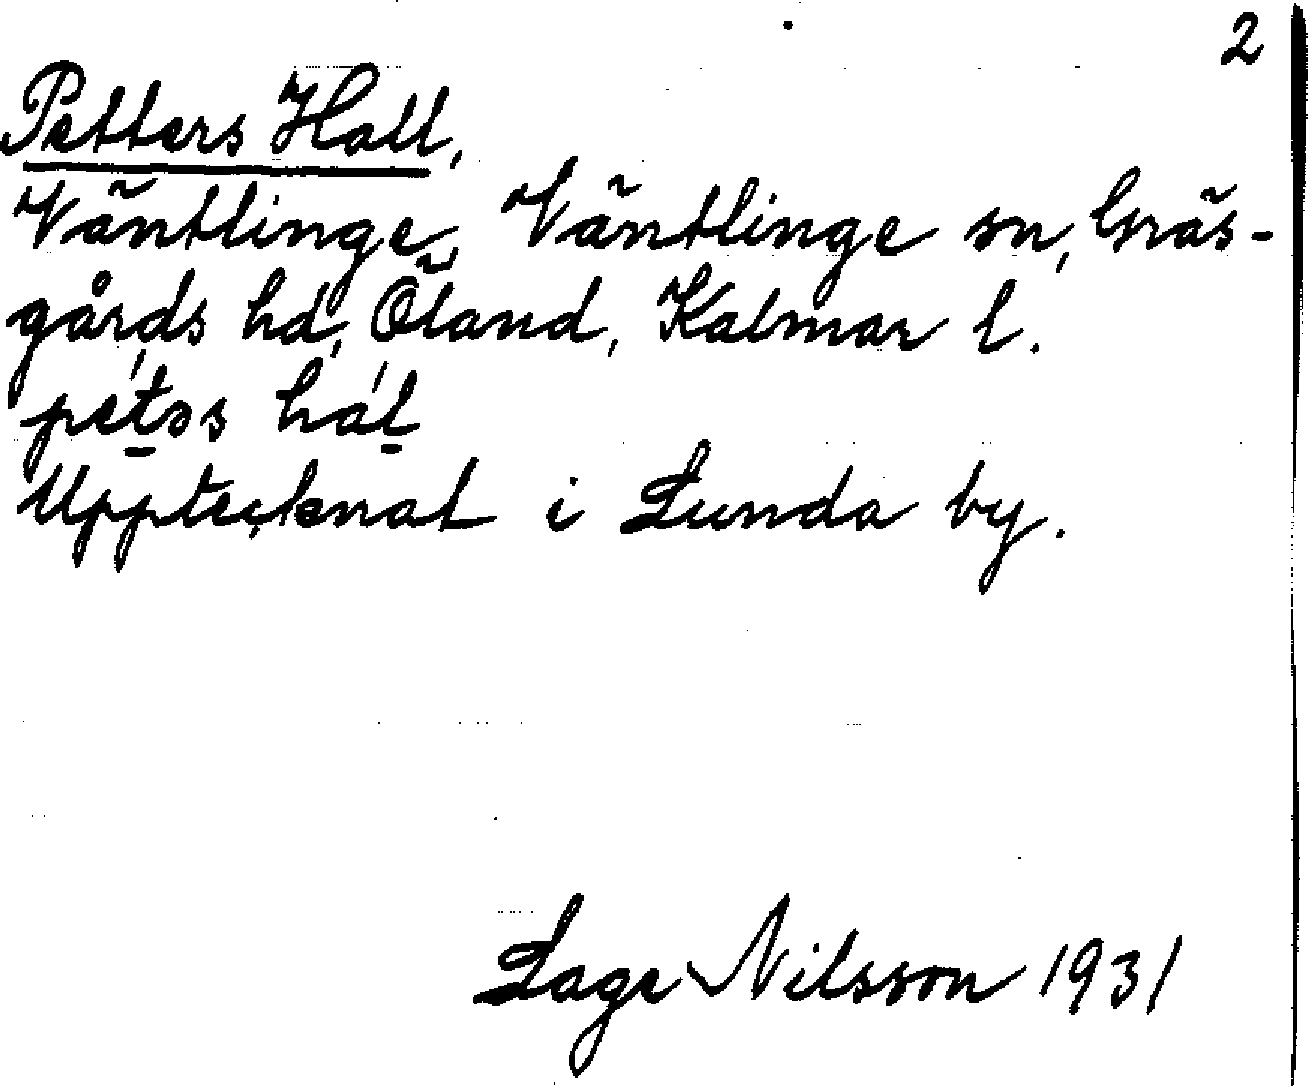 2
Petters Hall,
Väntlinge, Väntlinge sn, Gräs-
gårds hd, Öland, Kalmar l.
petəs hal
Upptecknat i Lunda by.
Lage Nilsson 1931